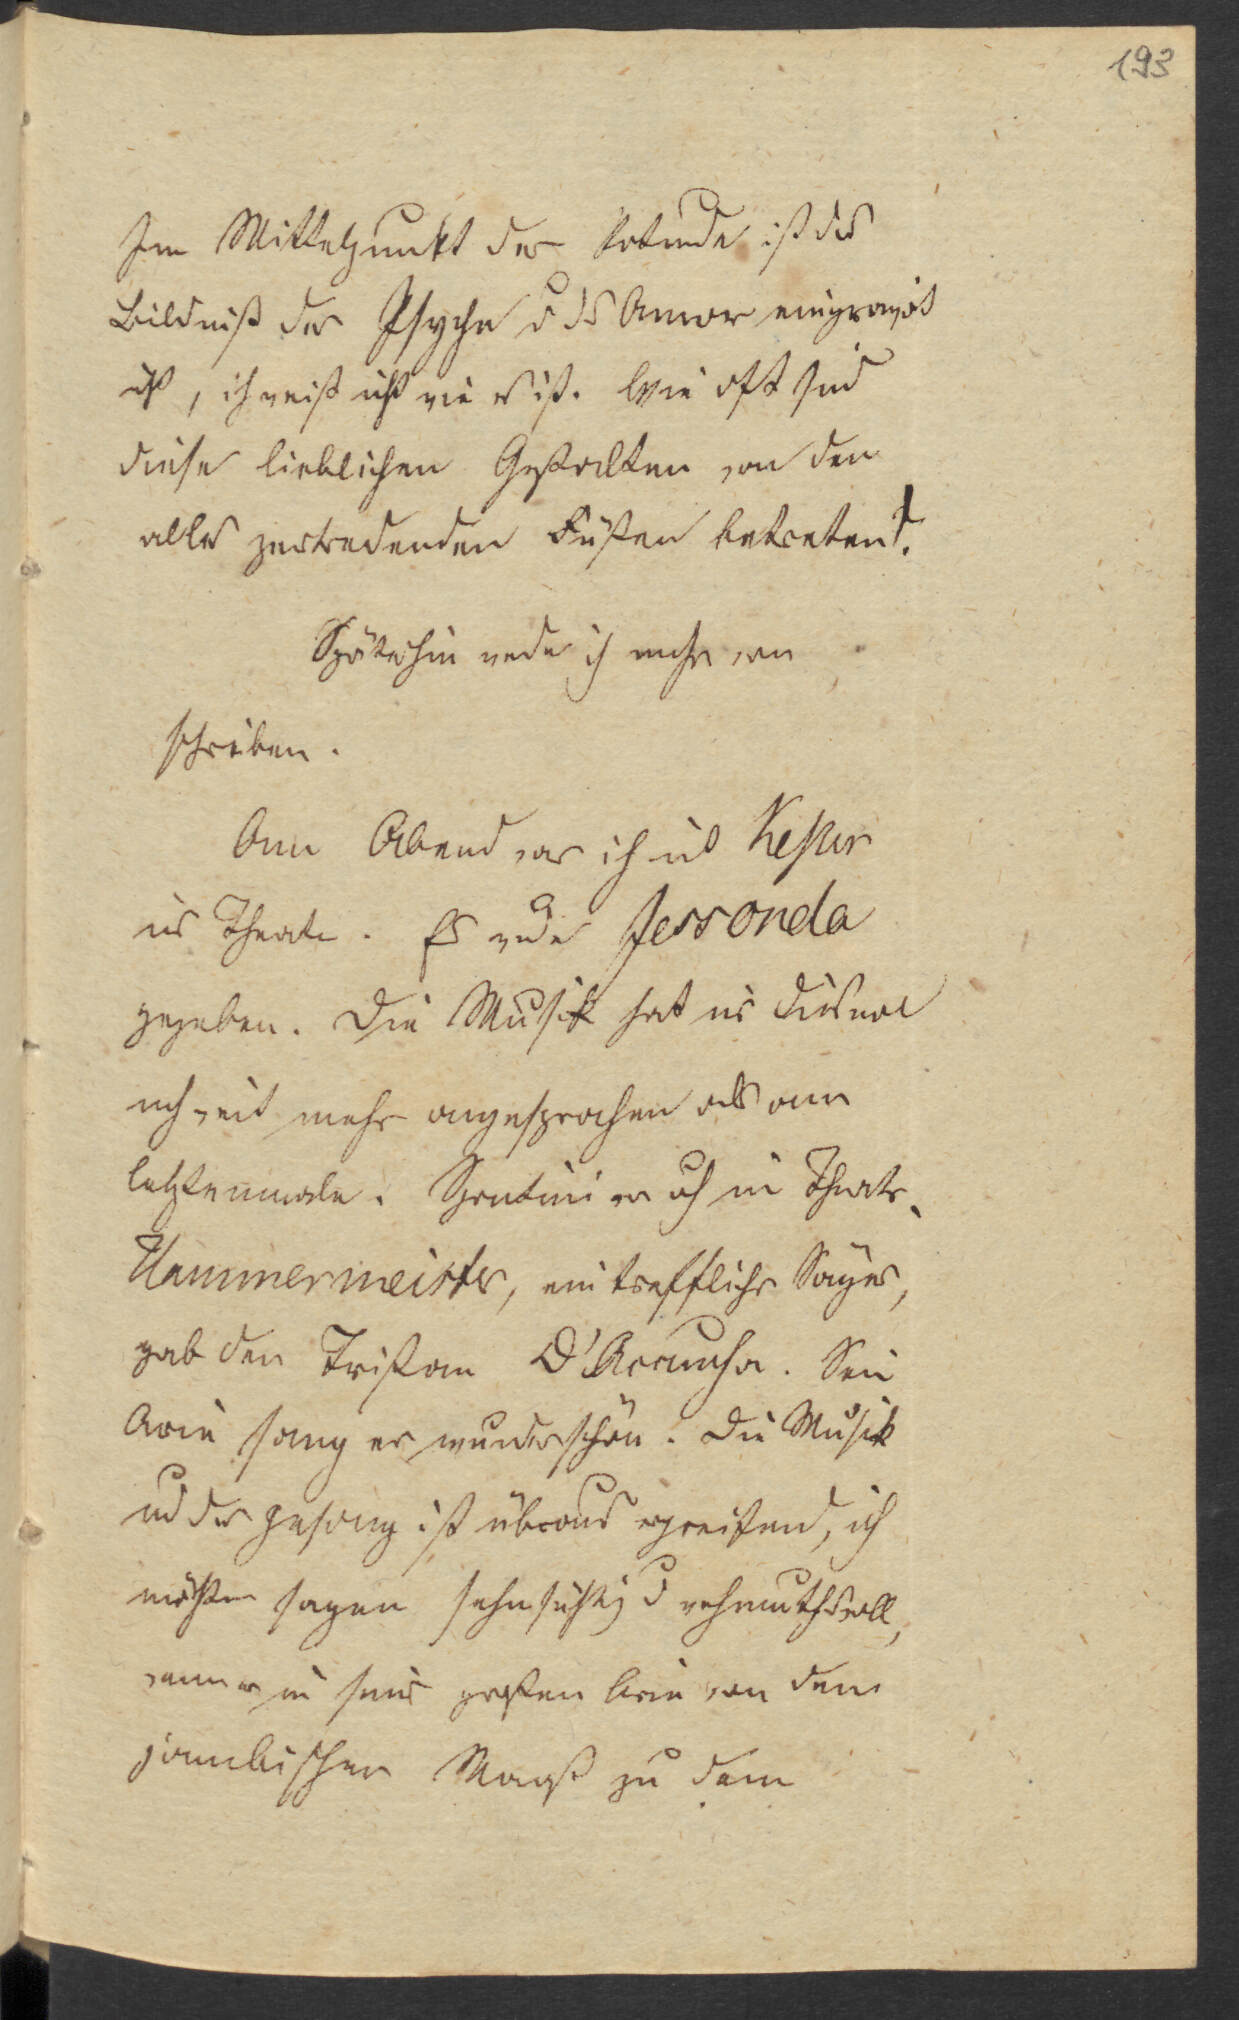 193
Im Mittelpunkt der Rotunde ist das
Bildniß der Psyche u ds Amor eingravirt
ist, ich weiß nicht wie es ist. Wie oft sind
diese lieblichen Gestalten von den
alles zertredenden Füßen betreten!
Späterhin werde ich mehr von
schreiben.
Am Abend war ich mit
im Theater. Es wurde Jessonda
gegeben. Die Musik hat uns diesmal
noch weit mehr angesprochen als am
letztenmale. Spontini war auch im Theater.
Hammermeister, ein trefflicher Sänger,
gab den Tristan D'Acunha. Seine
Arie sang er wunderschön. Die Musik
und der Gesang ist überaus ergreifend, ich
möchte sagen sehnsüchtig u wehmuthsvoll,
wenn er in seiner großen Arie von dem
jambischen Maaß zu dem